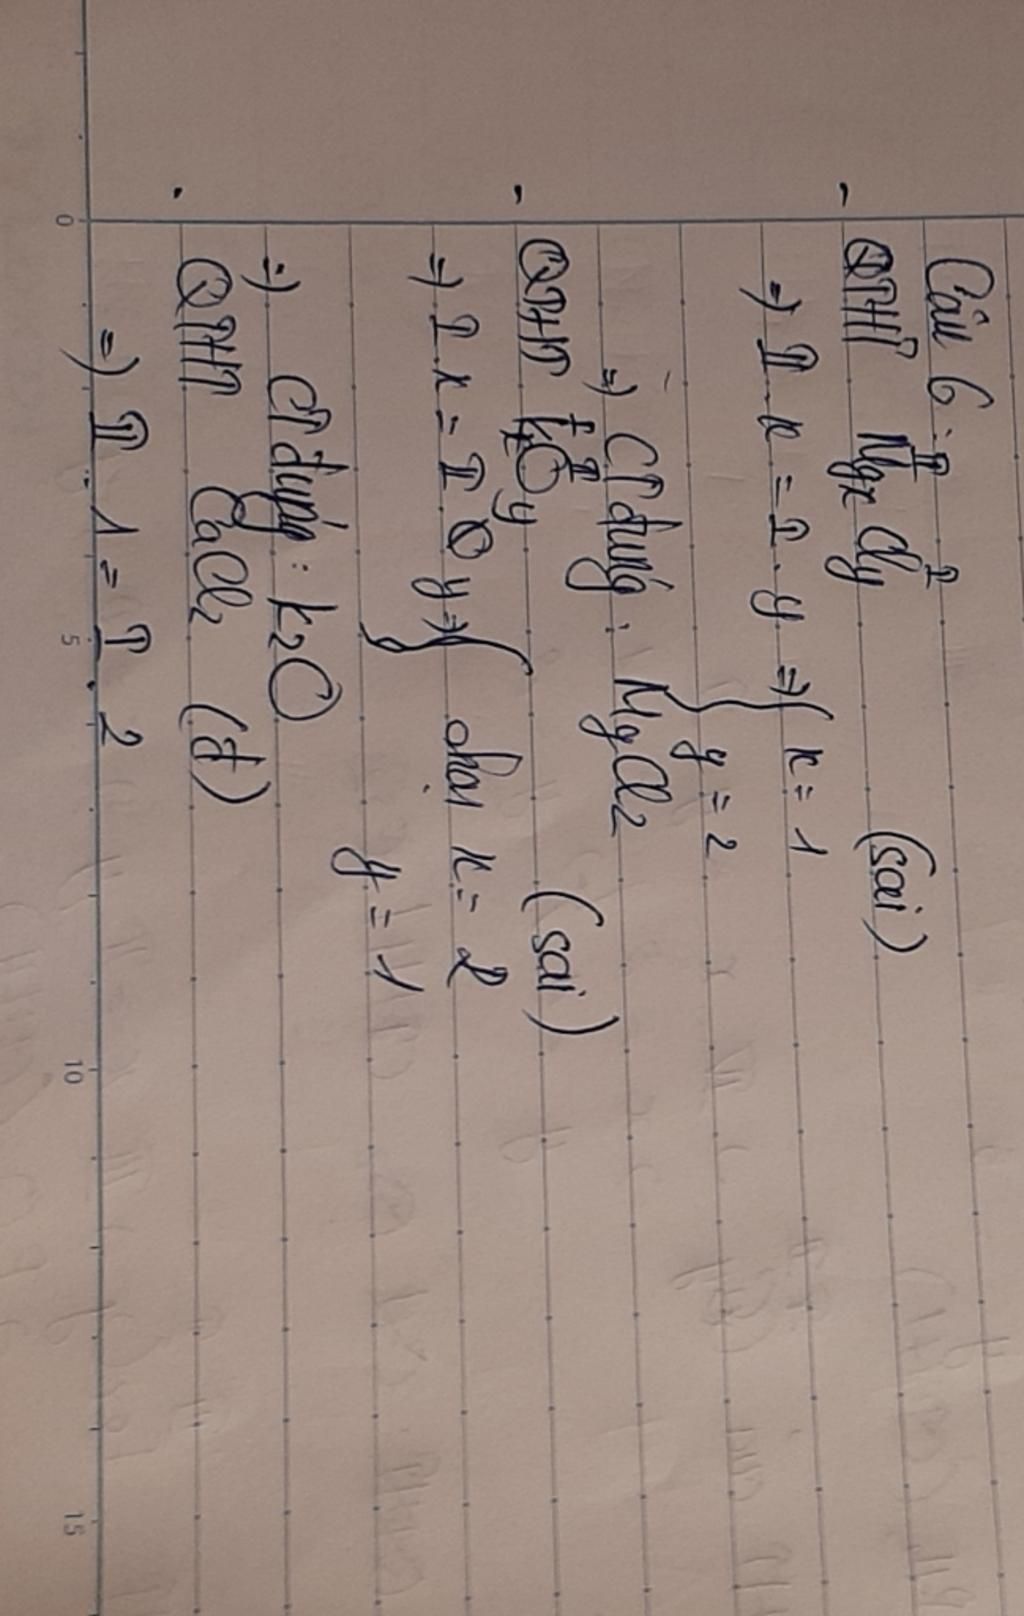 Câu 6:
- QTHT Mgx Cly (sai)
II I
=) II.x = I.y =) { x = 1
y = 2
=) CT đúng: MgCl2
- QTHT KxOy (sai)
I II
=) I.x = II.y =) { chọi x = 2
y = 1
=) CT đúng: K2O
. QTHT CaCl2 (đ)
=) II.1 = I.2
0 5 10 15